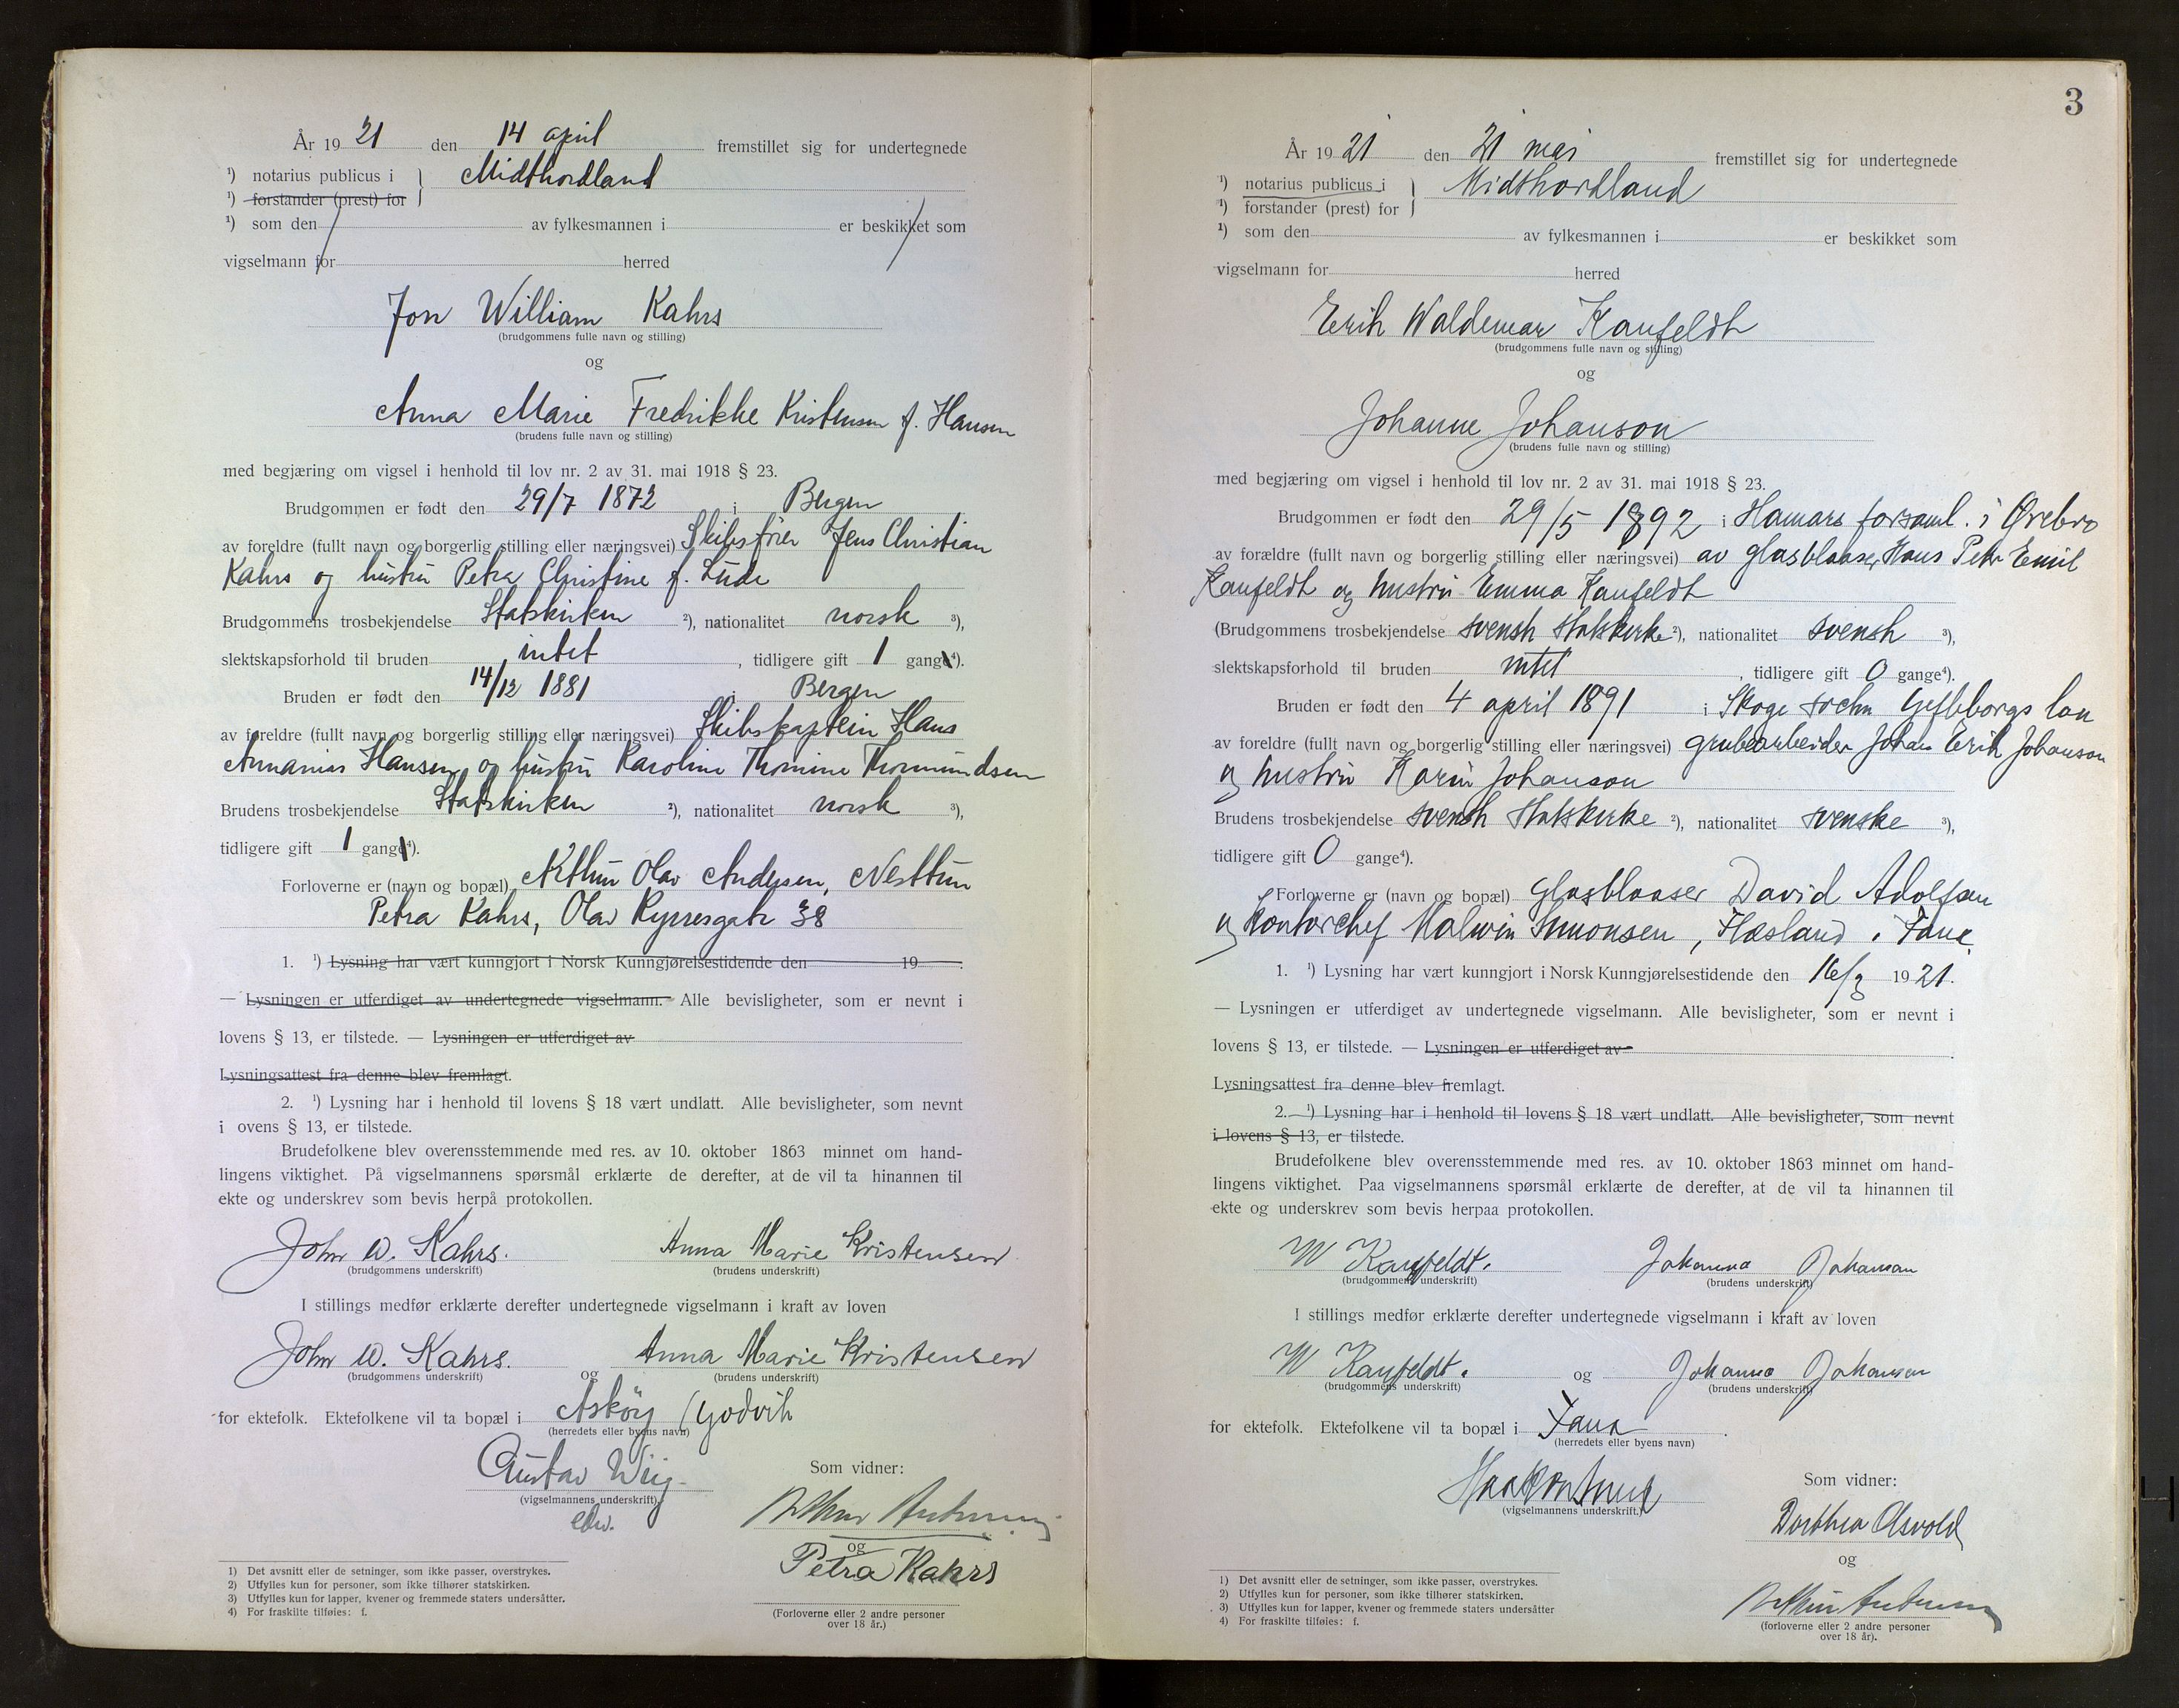 År 1921 den 14 april fremstillet sig for undertegnede
¹) notarius publicus i } Midthordland
¹) forstander (prest) for
¹) som den av fylkesmannen i er beskikket som
vigselmann for herred
Jon William Kahrs
(brudgommens fulle navn og stilling)
og
Anna Marie Fredrikke Kristensen f. Hansen
(brudens fulle navn og stilling)
med begjæring om vigsel i henhold til lov nr. 2 av 31. mai 1918 § 23.
Brudgommen er født den 29/7 1872 i Bergen
av foreldre (fullt navn og borgerlig stilling eller næringsvei) Skibsfører Jens Christian
Kahrs og hustru Petra Christine f. Lude
Brudgommens trosbekjendelse Statskirken ²), nationalitet norsk ³),
slektskapsforhold til bruden intet, tidligere gift 1 gange⁴).
Bruden er født den 14/12 1881 i Bergen
av foreldre (fullt navn og borgerlig stilling eller næringsvei) Skibskaptein Hans
Annanias Hansen og hustru Karoline Thomine Thormundsen
Brudens trosbekjendelse Statskirken ²), nationalitet norsk ³),
tidligere gift 1 gange⁴).
Forloverne er (navn og bopæl) Arthur Olav Andersen, Nesttun
Petra Kahrs, Olav Kyrresgate 38
1. ¹) Lysning har vært kunngjort i Norsk Kunngjørelsestidende den 19 .
— Lysningen er utferdiget av undertegnede vigselmann. Alle bevisligheter, som er nevnt i
lovens § 13, er tilstede. — Lysningen er utferdiget av
Lysningsattest fra denne blev fremlagt.
2. ¹) Lysning har i henhold til lovens § 18 vært undlatt. Alle bevisligheter, som nevnt
i ovens § 13, er tilstede.
Brudefolkene blev overensstemmende med res. av 10. oktober 1863 minnet om hand-
lingens viktighet. På vigselmannens spørsmål erklærte de derefter, at de vil ta hinannen til
ekte og underskrev som bevis herpå protokollen.
John W. Kahrs. Anna Marie Kristensen
(brudgommens underskrift) (brudens underskrift)
I stillings medfør erklærte derefter undertegnede vigselmann i kraft av loven
John W. Kahrs. og Anna Marie Kristensen
(brudgommens underskrift) (brudens underskrift)
for ektefolk. Ektefolkene vil ta bopæl i Askøy (Godvik
(herredets eller byens navn)
Gustav Wiig
(vigselmannens underskrift)
edv.
Som vidner:
Arthur Andersen
og
Petra Kahrs
(Forloverne eller 2 andre personer
over 18 år.)
1) Det avsnitt eller de setninger, som ikke passer, overstrykes.
2) Utfylles kun for personer, som ikke tilhører statskirken.
3) Utfylles kun for lapper, kvener og fremmede staters undersåtter.
4) For fraskilte tilføies: f.
3
År 1921 den 21 mai fremstillet sig for undertegnede
¹) notarius publicus i } Midthordland
¹) forstander (prest) for
¹) som den av fylkesmannen i er beskikket som
vigselmann for herred
Erik Waldemar Kanfeldt
(brudgommens fulle navn og stilling)
og
Johanne Johanson
(brudens fulle navn og stilling)
med begjæring om vigsel i henhold til lov nr. 2 av 31. mai 1918 § 23.
Brudgommen er født den 29/5 1892 i Hamars forsaml. i Ørebro
av forældre (fullt navn og borgerlig stilling eller næringsvei) av glasblaaser Hans Petr Emil
Kanfeldt og hustru Emma Kanfeldt
(Brudgommens trosbekjendelse svensk Statskirke ²), nationalitet svensk ³),
slektskapsforhold til bruden intet, tidligere gift 0 gange⁴).
Bruden er født den 4 april 1891 i Skoge sockn Gefleborgs lan
av foreldre (fullt navn og borgerlig stilling eller næringsvei) grubearbeider Johan Erik Johanson
og hustru Karin Johanson
Brudens trosbekjendelse svensk Statskirke ²), nationalitet svenske ³),
tidligere gift 0 gange⁴).
Forloverne er (navn og bopæl) Glasblaaser David Adolfsen
og kontorchef Malwin Simonsen, Flæsland i Fane
1. ¹) Lysning har vært kunngjort i Norsk Kunngjørelsestidende den 16/3 1921.
— Lysningen er utferdiget av undertegnede vigselmann. Alle bevisligheter, som er nevnt i
lovens § 13, er tilstede. — Lysningen er utferdiget av
Lysningsattest fra denne blev fremlagt.
2. ¹) Lysning har i henhold til lovens § 18 vært undlatt. Alle bevisligheter, som nevnt
i lovens § 13, er tilstede.
Brudefolkene blev overensstemmende med res. av 10. oktober 1863 minnet om hand-
lingens viktighet. Paa vigselmannens spørsmål erklærte de derefter, at de vil ta hinannen til
ekte og underskrev som bevis herpaa protokollen.
W Kanfeldt. Johanna Johanson
(brudgommens underskrift) (brudens underskrift)
I stillings medfør erklærte derefter undertegnede vigselmann i kraft av loven
W Kanfeldt. og Johanna Johanson
(brudgommens underskrift) (brudens underskrift)
for ektefolk. Ektefolkene vil ta bopæl i Fana.
(herredets eller byens navn)
(vigselmannens underskrift.)
Som vidner:
Dorthea Osvold
og
Arthur Andersen
(forloverne eller 2 andre personer
over 18 år).
1) Det avsnitt eller de setninger, som ikke passer, overstrykes.
2) Utfylles kun for personer, som ikke tilhører statskirken.
3) Utfylles kun for lapper, kvener og fremmede staters undersåtter
4) For fraskilte tilføies: f.